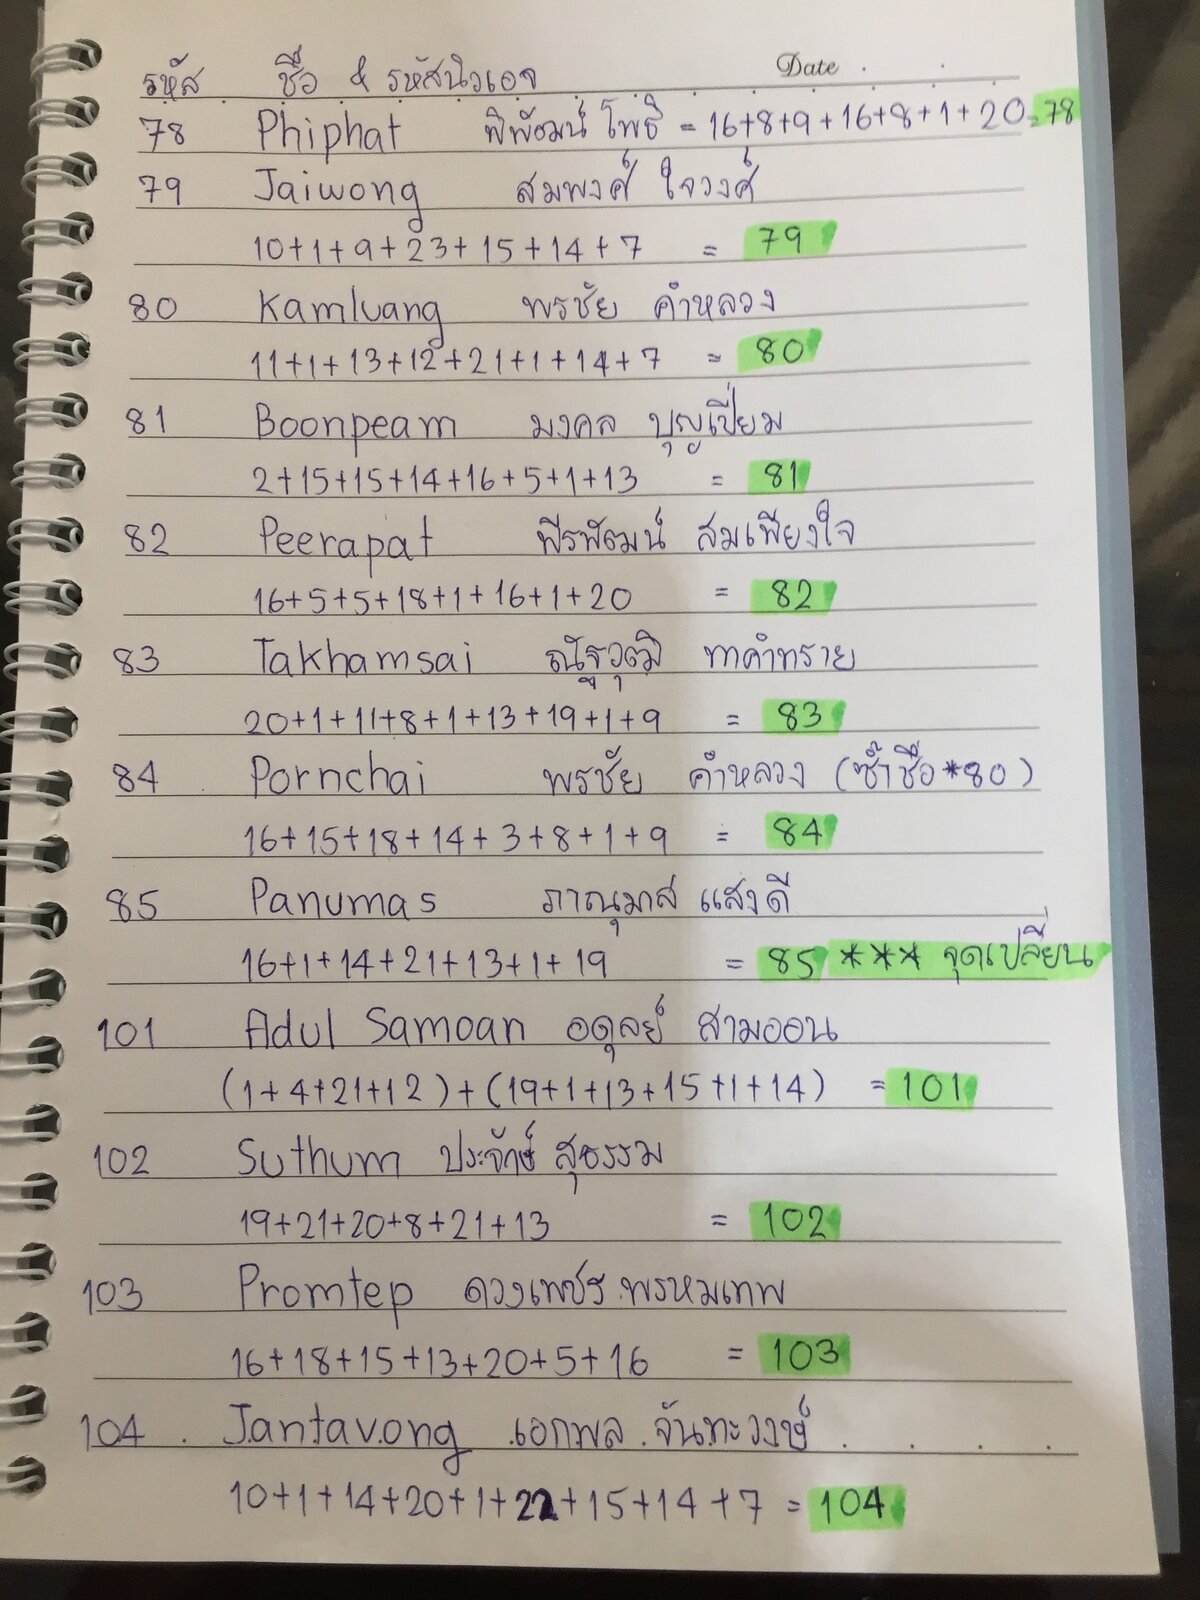 Date
รหัส ชื่อ & รหัสนิวเอจ
78 Phiphat พิพัฒน์ โพธิ์ = 16+8+9+16+8+1+20=78
79 Jaiwong สมพงศ์ ใจวงศ์
10+1+9+23+15+14+7 = 79
80 Kamluang พรชัย คำหลวง
11+1+13+12+21+1+14+7 = 80
81 Boonpeam มงคล บุญเปี่ยม
2+15+15+14+16+5+1+13 = 81
82 Peerapat พีรพัฒน์ สมเพียงใจ
16+5+5+18+1+16+1+20 = 82
83 Takhamsai ณัฐวุฒิ ทาคำทราย
20+1+11+8+1+13+19+1+9 = 83
84 Pornchai พรชัย คำหลวง (ซ้ำชื่อ*80)
16+15+18+14+3+8+1+9 = 84
85 Panumas ภาณุมาส แสงดี
16+1+14+21+13+1+19 = 85 *** จุดเปลี่ยน
101 Adul Samoan อดุลย์ สามออน
(1+4+21+12)+(19+1+13+15+1+14) = 101
102 Suthum ประจักษ์ สุธรรม
19+21+20+8+21+13 = 102
103 Promtep ดวงเพชร พรหมเทพ
16+18+15+13+20+5+16 = 103
104 Jantavong เอกพล จันทะวงษ์
10+1+14+20+1+22+15+14+7 = 104